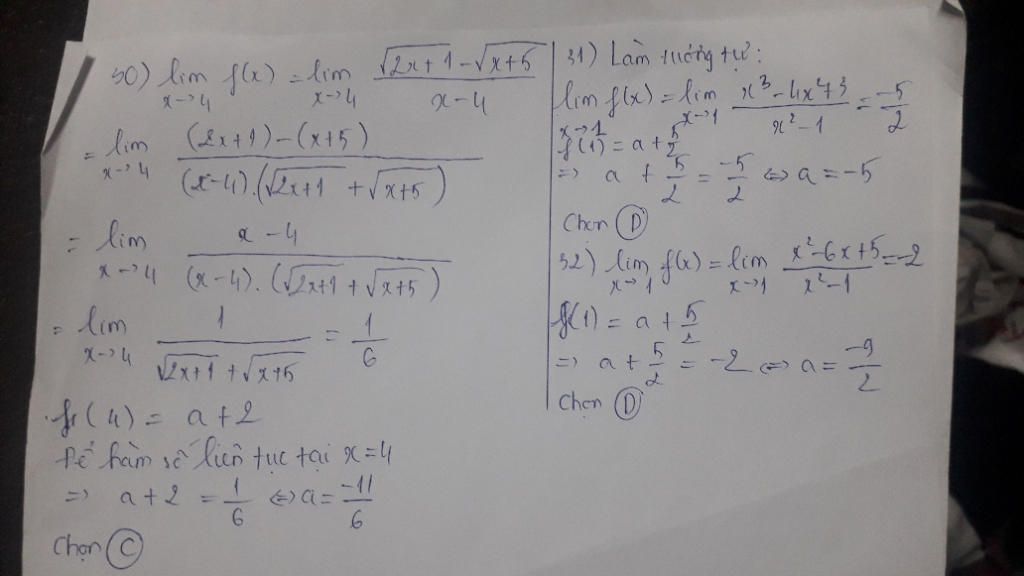 30) lim f(x) = lim (√(2x+1) - √(x+5))/(x-4)
x→4 x→4
= lim ((2x+1)-(x+5))/((x-4).(√(2x+1) + √(x+5)))
x→4
= lim (x-4)/((x-4).(√(2x+1) + √(x+5)))
x→4
= lim 1/(√(2x+1) + √(x+5)) = 1/6
x→4
f(4) = a+2
Để hàm số liên tục tại x=4
=> a+2 = 1/6 <=> a = -11/6
Chọn C
31) Làm tương tự:
lim f(x) = lim (x³-4x²+3)/(x²-1) = -5/2
x→1 x→1
f(1) = a + 5/2
=> a + 5/2 = -5/2 <=> a = -5
Chọn D
32) lim f(x) = lim (x²-6x+5)/(x²-1) = -2
x→1 x→1
f(1) = a + 5/2
=> a + 5/2 = -2 <=> a = -9/2
Chọn D